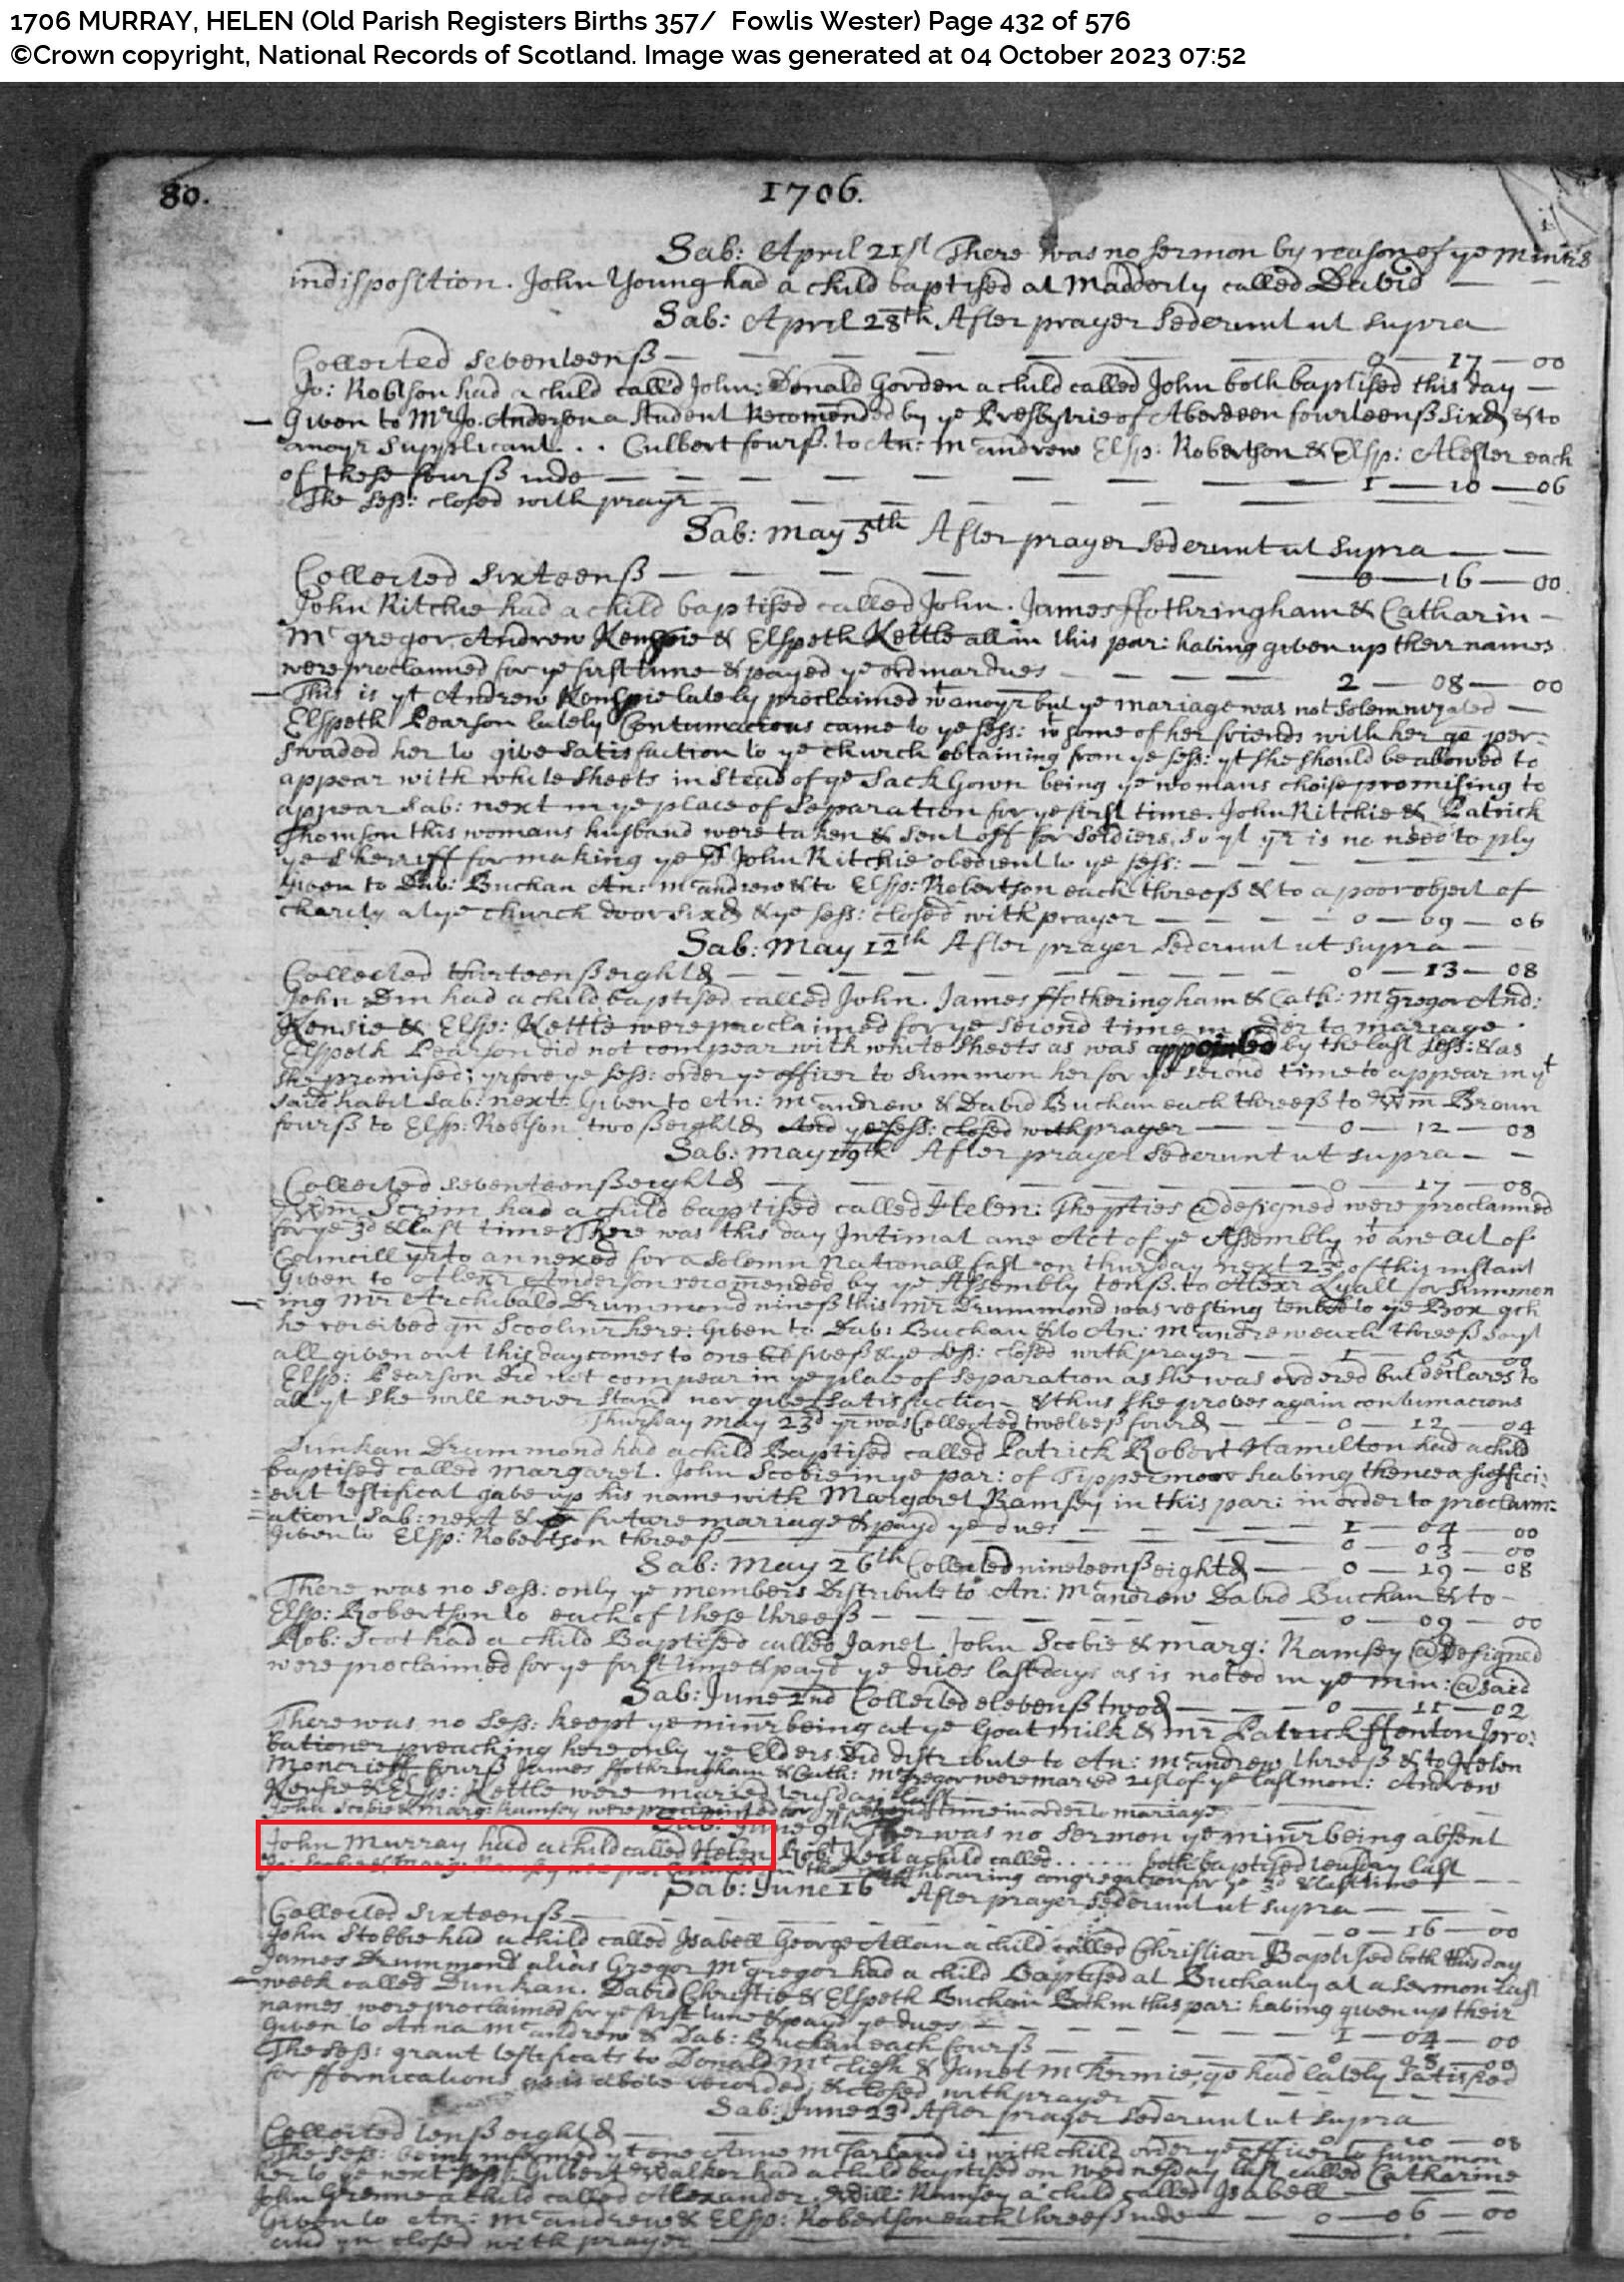 1706 MURRAY, HELEN (Old Parish Registers Births 357/ Fowlis Wester) Page 432 of 576
©Crown copyright, National Records of Scotland. Image was generated at 04 October 2023 07:52
80. 1706.
Sab: April 21st There was no sermon by reason of ye minrs
indisposition. John Young had a child baptised at Madderty called David
Sab: April 28th After prayer sederunt ut supra
Collected seventeenß 0 17 00
Jo: Robtson had a child called John: Donald Gorden a child called John both baptised this day
Given to Mr Jo: Anderson a student recomended by ye Presbytrie of Aberdeen fourteenß sixd & to
anoyr supplicant . . Culbert fourß to An: Mcandrew Elsp: Robertson & Elsp: Alester each
of these fourß inde 1 10 06
The sess: closed with prayr
Sab: May 5th After prayer sederunt ut supra
Collected sixteenß 0 16 00
John Ritchie had a child baptised called John. James ffothringham & Catharin
Mcgregor, Andrew & Elspeth Kettle all in this par: having given up their names
were proclaimed for ye first time & payed ye ordinar dues 2 08 00
This is yt Andrew lately proclaimed wt anoyr but ye mariage was not solemnyzated
Elspeth Pearson lately Contumacious came to ye sess: wt some of her friends with her qo per-
swaded her to give satisfaction to ye church obtaining from ye sess: yt she should be allowed to
appear with white sheets in stead of ye Sack Gown being ye womans choise promising to
appear Sab: next in ye place of separation for ye first time. John Ritchie & Patrick
Thomson this womans husband were taken & sent off for soldiers, so yt yr is no need to ply
ye sherriff for making ye sd John Ritchie obedient to ye sess:
Given to Dav: Buchan An: Mcandrew & to Elsp: Robertson each threeß & to a poor object of
charity at ye church door sixd & ye sess: closed with prayer 0 09 06
Sab: May 12th After prayer sederunt ut supra
Collected thirteenß eightd 0 13 08
John Din had a child baptised called John. James ffotheringham & Cath: Mcgregor And:
Kensie & Elsp: Kettle were proclaimed for ye second time in order to mariage
Elspeth Pearson did not compear with white sheets as was appointed by the last sess: & as
she promised; yrfore ye sess: order ye officer to summon her for ye second time to appear in yt
said habit Sab: next. Given to An: Mcandrew & David Buchan each threeß to Wm Broun
fourß to Elsp: Robtson twoß eightd And ye sess: closed with prayer 0 12 08
Sab: May 19th After prayer sederunt ut supra
Collected seventeenß eightd 0 17 08
Wm Scrim had a child baptised called Helen: The pties @designed were proclaimed
for ye 3d & last time. There was this day Intimat ane Act of ye Assembly wt ane act of
Councill yrto annexed for a solemn Nationall fast on thursday next 23d of this instant
Given to Alexr Anderson recomended by ye Assembly tenß to Alexr Lyall for summon
ing Mr Archibald Drummond nineß this Mr Drummond was resting to ye Box qch
he received qn Scoolmr here: Given to Dav: Buchan & to An: Mcandrew each threeß so yt
all given out this day comes to one fiveß & ye sess: closed with prayer 1 05 00
Elsp: Pearson did not compear in ye place of separation as she was ordered but declares to
all yt she will never stand nor give satisfaction & thus she proves again contumacious
Thursday May 23d yr was Collected twelveß fourd 0 12 04
Dunkan Drummond had a child Baptised called Patrick Robert Hamelton had a child
baptised called Margaret. John Scobie in ye par: of Tippermoor having thence a suffici:
ent testificat gave up his name with Margaret Ramsey in this par: in order to proclam:
ation Sab: next & future mariage & payd ye dues 1 04 00
Given to Elsp: Robertson threeß 0 03 00
Sab: May 26th Collected nineteenß eightd 0 19 08
There was no sess: only ye members Distribute to An: Mcandrew David Buchan & to
Elsp: Robertson to each of these threeß 0 09 00
Rob: Scot had a child Baptised called Janet John Scobie & Marg: Ramsey @designed
were proclaimed for ye first time & payd ye dues last day as is noted in ye min: @said
Sab: June 2nd Collected elevenß twod 0 11 02
There was no sess: keept ye minr being at ye Goat milk & Mr Patrick ffenton pro:
bationer preaching here only ye Elders did distribute to An: Mcandrew threeß & to Helen
Moncrieff fourß James ffothringham & Cath: Mcgregor were maried 21st of ye last mon: Andrew
Kensie & Elsp: Kettle were maried teusday last
John Scobie & Marg: Ramsey were proclaimed for ye second time in order to mariage
Sab: June 9th Ther was no sermon ye minr being absent
John Murray had a child called Helen Robt Keil a child called . . . . . . both baptised teusday last
Jo: Scobie & Marg: Ramsey were proclaimed in the neighbouring congregation for ye 3d & last time
Sab: June 16th After prayer sederunt ut supra
Collected sixteenß 0 16 00
John Stobbie had a child called Isabell George Allan a child called Christian Baptised both this day
James Drummond alias Gregor Mcgregor had a child Baptised at Buchanty at a sermon last
week called Dunkan. David Christie & Elspeth Buchan Both in this par: having given up their
names were proclaimed for ye first time & payd ye dues 1 04 00
Given to Anna Mcandrew & Dav: Buchan each fourß 0 8 00
The sess: grant testificats to Donald & Janet qo had lately satisfied
for ffornications as is above recorded; & closed with prayer
Sab: June 23d After prayer sederunt ut supra
Collected tenß eightd 0 10 08
The sess: being informed yt one Anne Mcfarland is with child order ye officer to summon
her to ye next sess: Gilbert Walker had a child baptised on wednesday last called Catharine
John Gremme a child called Alexander. Will: Ramsey a child called Isabell
Given to An: Mcandrew & Elsp: Robertson each threeß inde 0 06 00
and yn closed with prayer